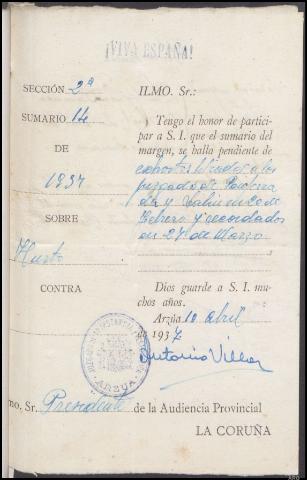 ¡VIVA ESPAÑA!
SECCIÓN 2ª
SUMARIO 14
DE
1937
SOBRE
Hurto
CONTRA
ILMO. Sr.:
Tengo el honor de partici-
par a S. I. que el sumario del
margen, se halla pendiente de
exhortos librados a los
juzgados de
y de
Febrero y recordados
en 27 de Marzo
Dios guarde a S. I. mu-
chos años.
Arzúa 10 abril
de 1937
Antonio Villar
ARZÚA
mo, Sr. Presidente de la Audiencia Provincial
LA CORUÑA